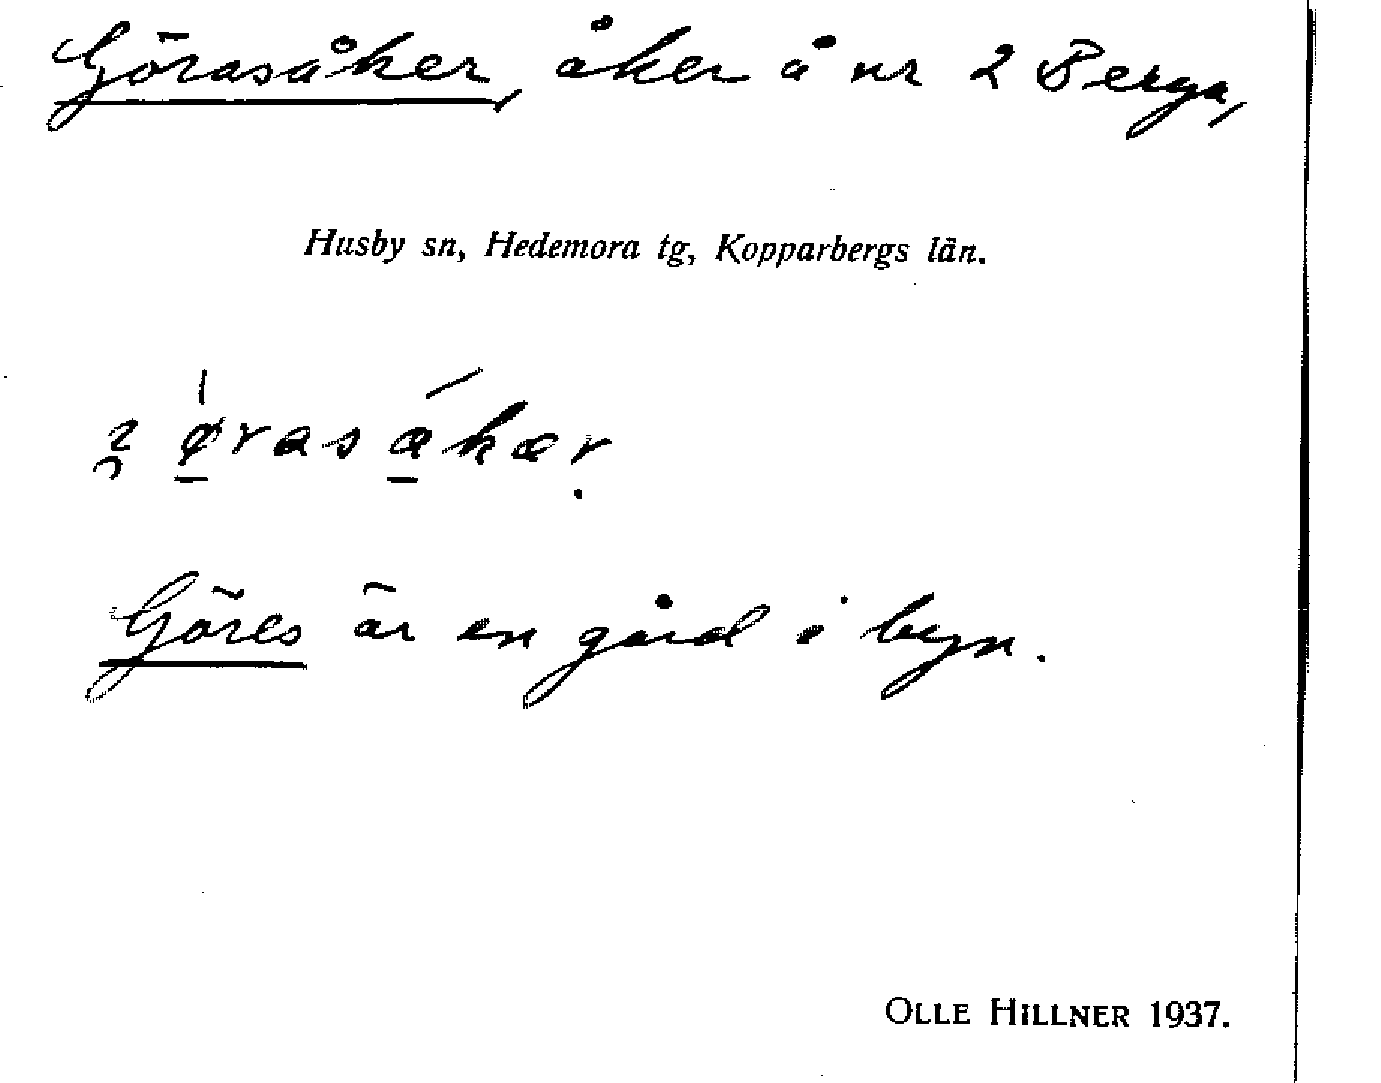 Görasåker, åker å nr 2 Berga,
Husby sn, Hedemora tg, Kopparbergs län.
Göres är en gård i byn.
OLLE HILLNER 1937.